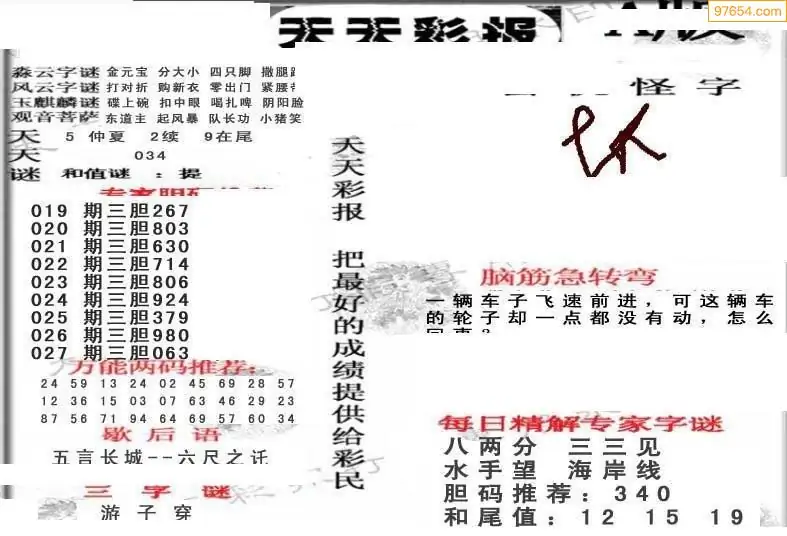 97654.com
天天彩报
淼云字谜 金元宝 分大小 四只脚 撒腿
风云字谜 打对折 购新衣 零出门 紧腰
玉麒麟谜 碟上碗 扣中眼 喝扎啤 阴阳脸
观音菩萨 东道主 起风暴 队长功 小猪笑
天 5 仲夏 2续 9在尾
天 034
谜 和值谜 :提
019 期三胆267
020 期三胆803
021 期三胆630
022 期三胆714
023 期三胆806
024 期三胆924
025 期三胆379
026 期三胆980
027 期三胆063
万能两码推荐:
24 59 13 24 02 45 69 28 57
12 36 15 03 07 63 46 29 23
87 56 71 94 64 69 57 60 34
歇后语
五言长城--六尺之讬
三字谜
游子穿
天天彩报 把最好的成绩提供给彩民
怪字
脑筋急转弯
一辆车子飞速前进，可这辆车
的轮子却一点都没有动，怎么
每日精解专家字谜
八两分 三三见
水手望 海岸线
胆码推荐：340
和尾值：12 15 19